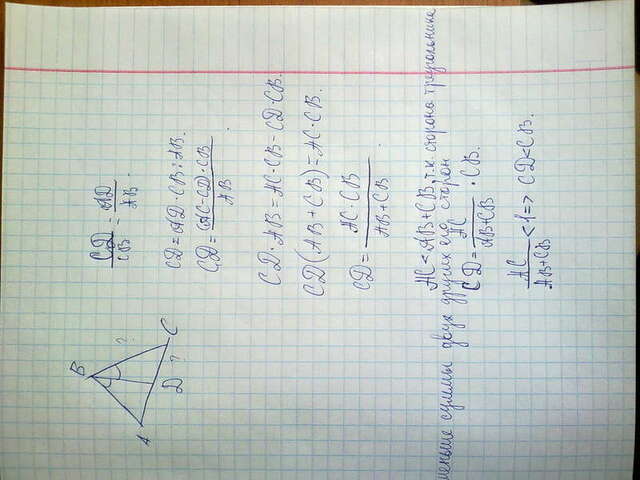 B
A
D
C
?
?
CD/CB = AD/AB.
CD = AD·CB : AB.
CD = (AC-CD)·CB/AB.
CD·AB = AC·CB - CD·CB.
CD(AB+CB) = AC·CB.
CD = AC·CB/AB+CB.
AC < AB+CB, т.к. сторона треугольника
меньше суммы двух других его сторон
CD = AC/AB+CB · CB.
AC/AB+CB < 1 => CD < CB.